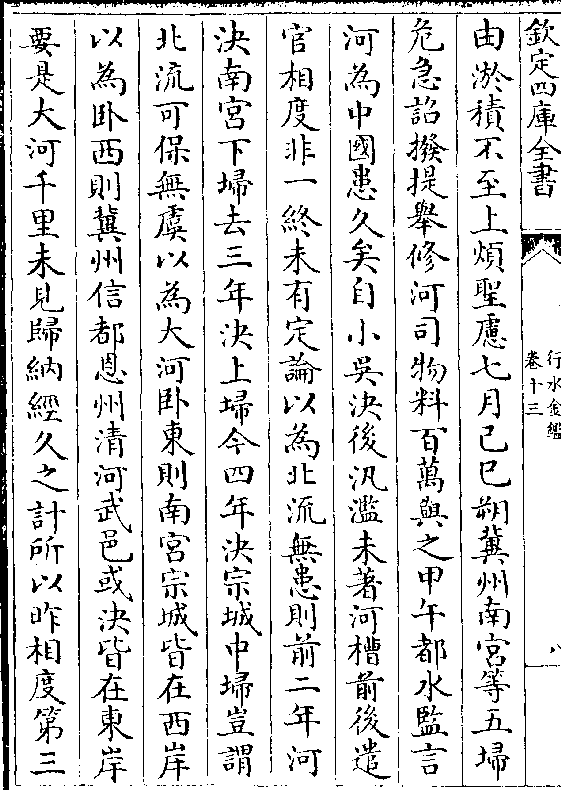 欽定四庫全書
行水金鑑
卷十三
八
由淤積不至上煩聖慮七月己巳朔冀州南宫等五埽
危急詔撥提舉修河司物料百萬與之甲午都水監言
河為中國患久矣自小吳決後汎濫未著河槽前後遣
官相度非一終未有定論以為北流無患則前二年河
決南宫下埽去三年決上埽今四年決宗城中埽豈謂
北流可保無虞以為大河卧東則南宫宗城皆在西岸
以為卧西則冀州信都恩州清河武邑或決皆在東岸
要是大河千里未見歸納經久之計所以昨相度第三